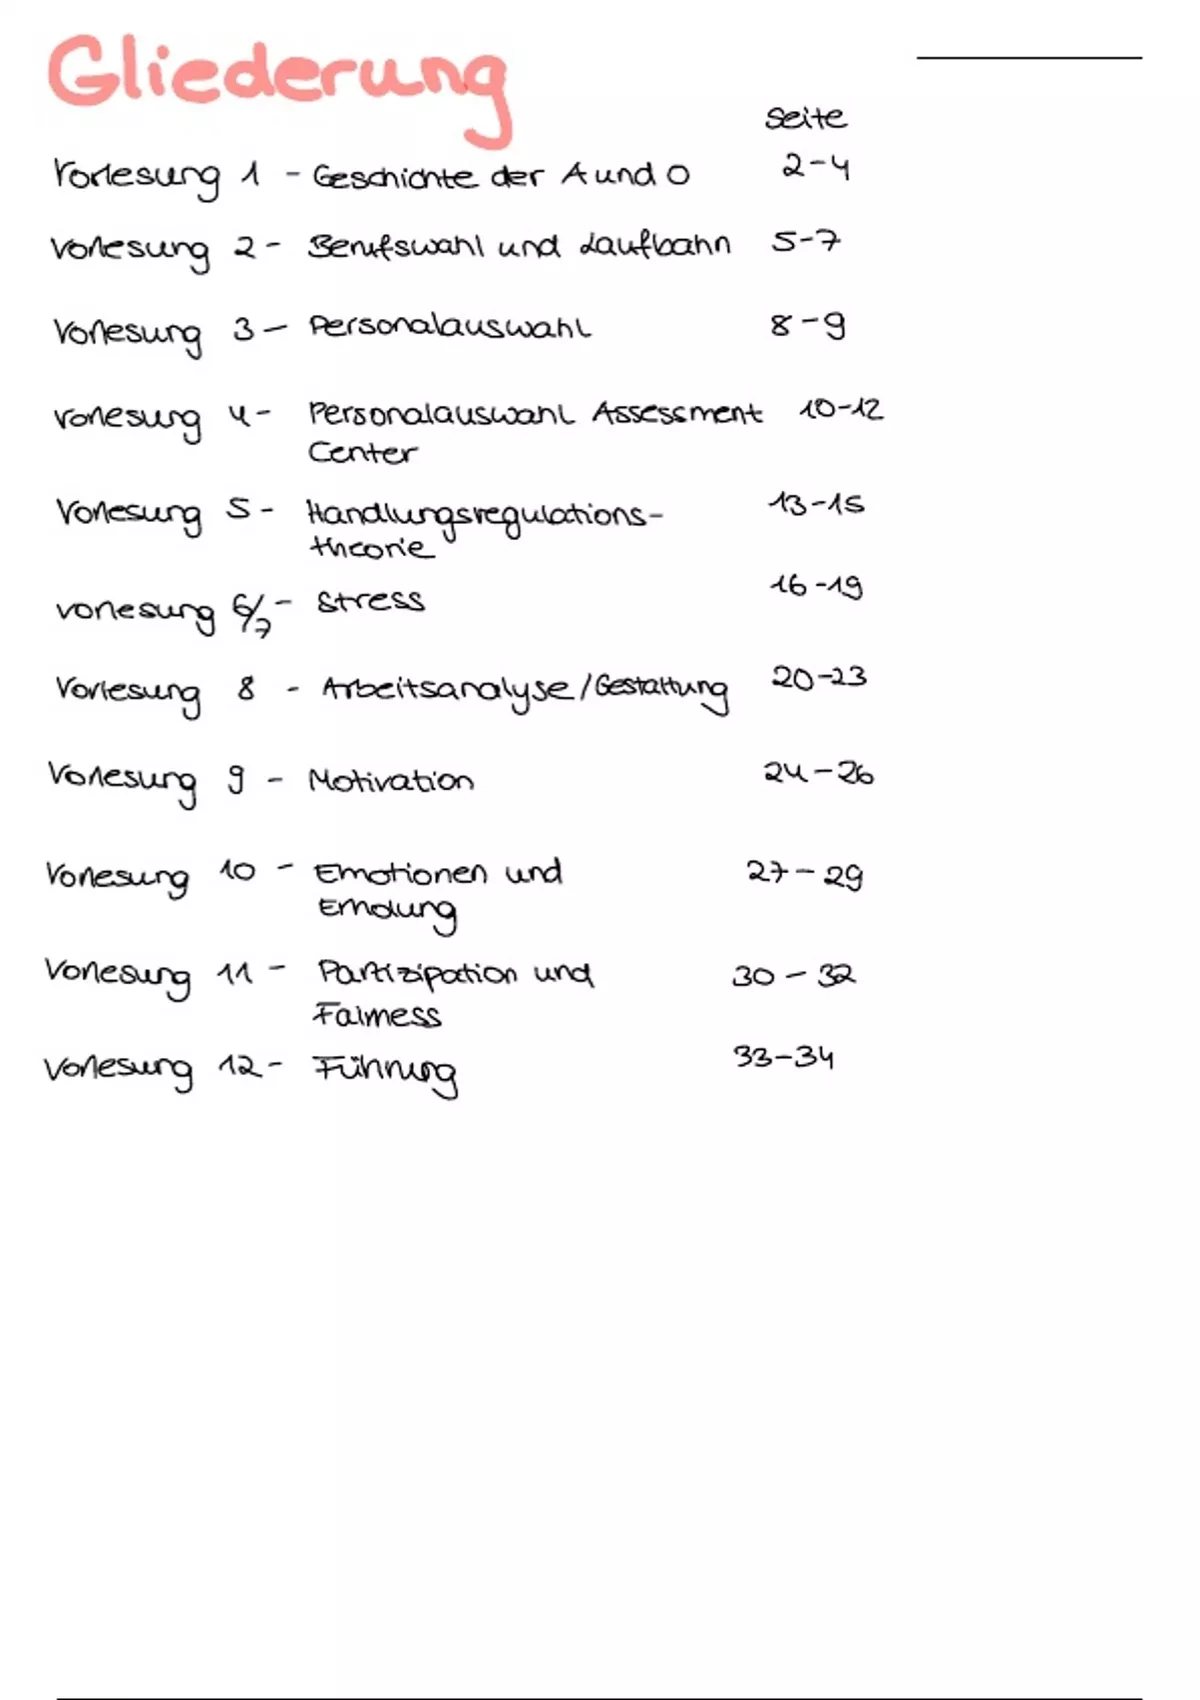 Gliederung
Seite
Vorlesung 1 - Geschichte der A und O 2-4
Vorlesung 2 - Berufswahl und Laufbahn 5-7
Vorlesung 3 - Personalauswahl 8-9
Vorlesung 4 - Personalauswahl Assessment 10-12
Center
Vorlesung 5 - Handlungsregulations- 13-15
theorie
Vorlesung 6/7 - Stress 16-19
Vorlesung 8 - Arbeitsanalyse/Gestaltung 20-23
Vorlesung 9 - Motivation 24-26
Vorlesung 10 - Emotionen und 27-29
Erholung
Vorlesung 11 - Partizipation und 30-32
Fairness
Vorlesung 12 - Führung 33-34